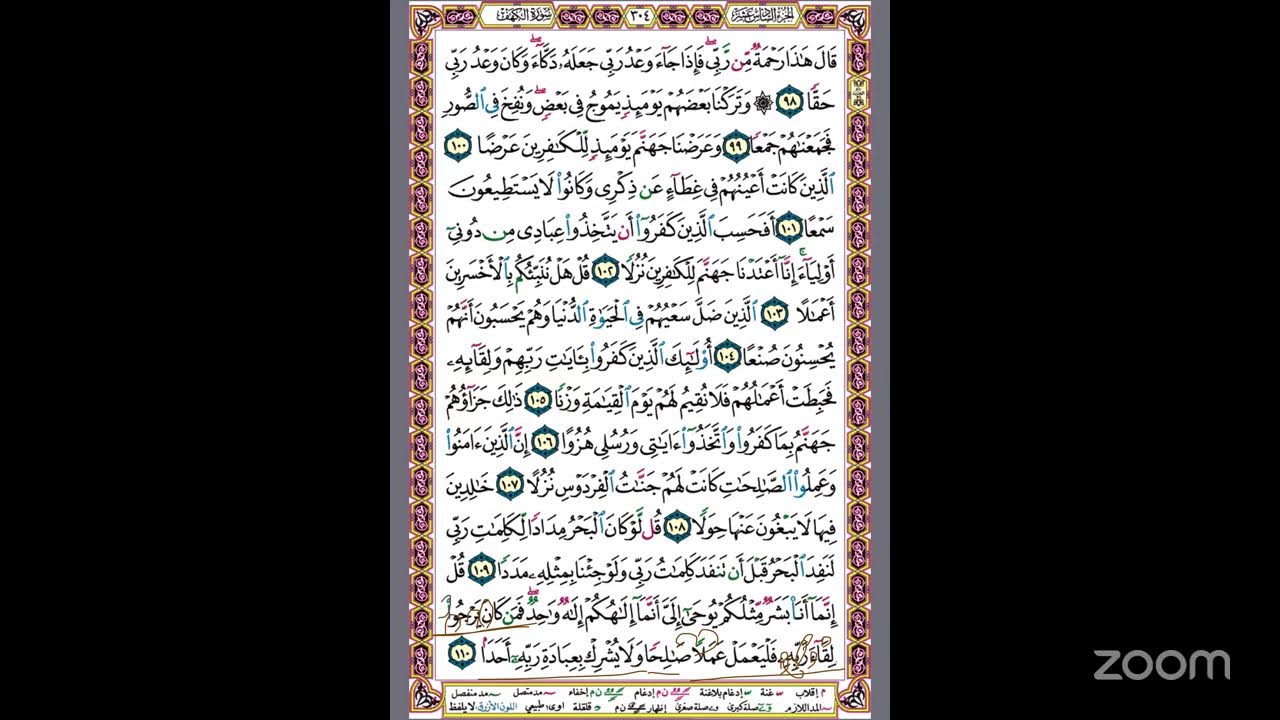 الجزء السادس عشر
٣٠٤
سورة الكهف
قَالَ هَٰذَا رَحْمَةٌ مِّن رَّبِّي ۖ فَإِذَا جَاءَ وَعْدُ رَبِّي جَعَلَهُۥ دَكَّاءَ ۖ وَكَانَ وَعْدُ رَبِّي
حَقًّا ٩٨ ۞ وَتَرَكْنَا بَعْضَهُمْ يَوْمَئِذٍ يَمُوجُ فِي بَعْضٍ ۖ وَنُفِخَ فِي ٱلصُّورِ
فَجَمَعْنَاهُمْ جَمْعًا ٩٩ وَعَرَضْنَا جَهَنَّمَ يَوْمَئِذٍ لِّلْكَافِرِينَ عَرْضًا ١٠٠
ٱلَّذِينَ كَانَتْ أَعْيُنُهُمْ فِي غِطَآءٍ عَن ذِكْرِي وَكَانُوا۟ لَا يَسْتَطِيعُونَ
سَمْعًا ١٠١ أَفَحَسِبَ ٱلَّذِينَ كَفَرُوٓا۟ أَن يَتَّخِذُوا۟ عِبَادِي مِن دُونِيٓ
أَوْلِيَآءَ ۚ إِنَّآ أَعْتَدْنَا جَهَنَّمَ لِلْكَٰفِرِينَ نُزُلًا ١٠٢ قُلْ هَلْ نُنَبِّئُكُم بِٱلْأَخْسَرِينَ
أَعْمَٰلًا ١٠٣ ٱلَّذِينَ ضَلَّ سَعْيُهُمْ فِي ٱلْحَيَوٰةِ ٱلدُّنْيَا وَهُمْ يَحْسَبُونَ أَنَّهُمْ
يُحْسِنُونَ صُنْعًا ١٠٤ أُو۟لَٰٓئِكَ ٱلَّذِينَ كَفَرُوا۟ بِـَٔايَاتِ رَبِّهِمْ وَلِقَآئِهِۦ
فَحَبِطَتْ أَعْمَٰلُهُمْ فَلَا نُقِيمُ لَهُمْ يَوْمَ ٱلْقِيَٰمَةِ وَزْنًا ١٠٥ ذَٰلِكَ جَزَآؤُهُمْ
جَهَنَّمُ بِمَا كَفَرُوا۟ وَٱتَّخَذُوٓا۟ ءَايَٰتِي وَرُسُلِي هُزُوًا ١٠٦ إِنَّ ٱلَّذِينَ ءَامَنُوا۟
وَعَمِلُوا۟ ٱلصَّالِحَاتِ كَانَتْ لَهُمْ جَنَّٰتُ ٱلْفِرْدَوْسِ نُزُلًا ١٠٧ خَالِدِينَ
فِيهَا لَا يَبْغُونَ عَنْهَا حِوَلًا ١٠٨ قُل لَّوْ كَانَ ٱلْبَحْرُ مِدَادًا لِّكَلِمَٰتِ رَبِّي
لَنَفِدَ ٱلْبَحْرُ قَبْلَ أَن تَنفَدَ كَلِمَاتُ رَبِّي وَلَوْ جِئْنَا بِمِثْلِهِۦ مَدَدًا ١٠٩ قُلْ
إِنَّمَآ أَنَا۠ بَشَرٌ مِّثْلُكُمْ يُوحَىٰٓ إِلَيَّ أَنَّمَآ إِلَٰهُكُمْ إِلَٰهٌ وَٰحِدٌ ۖ فَمَن كَانَ يَرْجُوا۟
لِقَآءَ رَبِّهِۦ فَلْيَعْمَلْ عَمَلًا صَٰلِحًا وَلَا يُشْرِكْ بِعِبَادَةِ رَبِّهِۦٓ أَحَدًۢا ١١٠
م إقلاب غنة إدغام بلاغنة ن م إدغام ن م إخفاء مد متصل مد منفصل
المد اللازم صلة كبرى صلة صغرى إظهار ن م قلقلة اوى: طبيعي اللون الأزرق: لا يلفظ
zoom